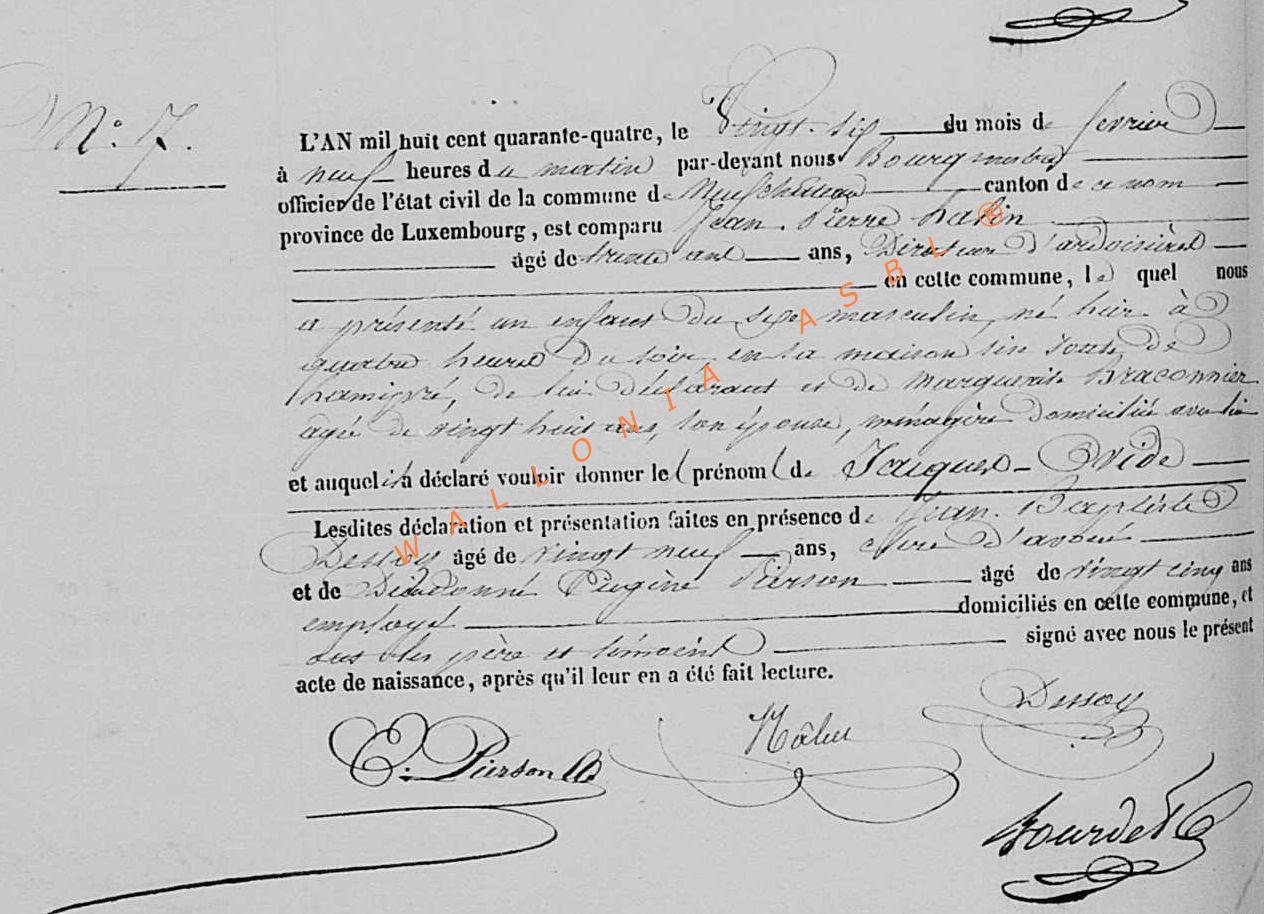 N° 7.
L'AN mil huit cent quarante-quatre, le Vingt-six du mois de fevrier
à neuf heures du matin par-devant nous Bourgmestre
officier de l'état civil de la commune de Neufchâteau canton de ce nom
province de Luxembourg, est comparu Jean-Pierre
âgé de trente ans ans, Directeur d'ardoisières
en cette commune, le quel nous
a présenté un enfant du sexe masculin, né hier à
quatre heures du soir en sa maison sise route de
hamipré, de lui déclarant et de Marguerite Braconnier
agée de vingt huit ans, son épouse, ménagère domiciliée avec lui
et auquel il a déclaré vouloir donner le prénom de Jacques-Ovide
Lesdites déclaration et présentation faites en présence de Jean-Baptiste
Dessoy âgé de vingt neuf ans, clerc d'avoué
et de Dieudonné Eugène Pierson âgé de vingt cinq ans
employé domiciliés en cette commune, et
ont les père et témoins signé avec nous le présent
acte de naissance, après qu'il leur en a été fait lecture.
Dessoy
E. Pierson
Bourdet
WALLONIA ASBL ®